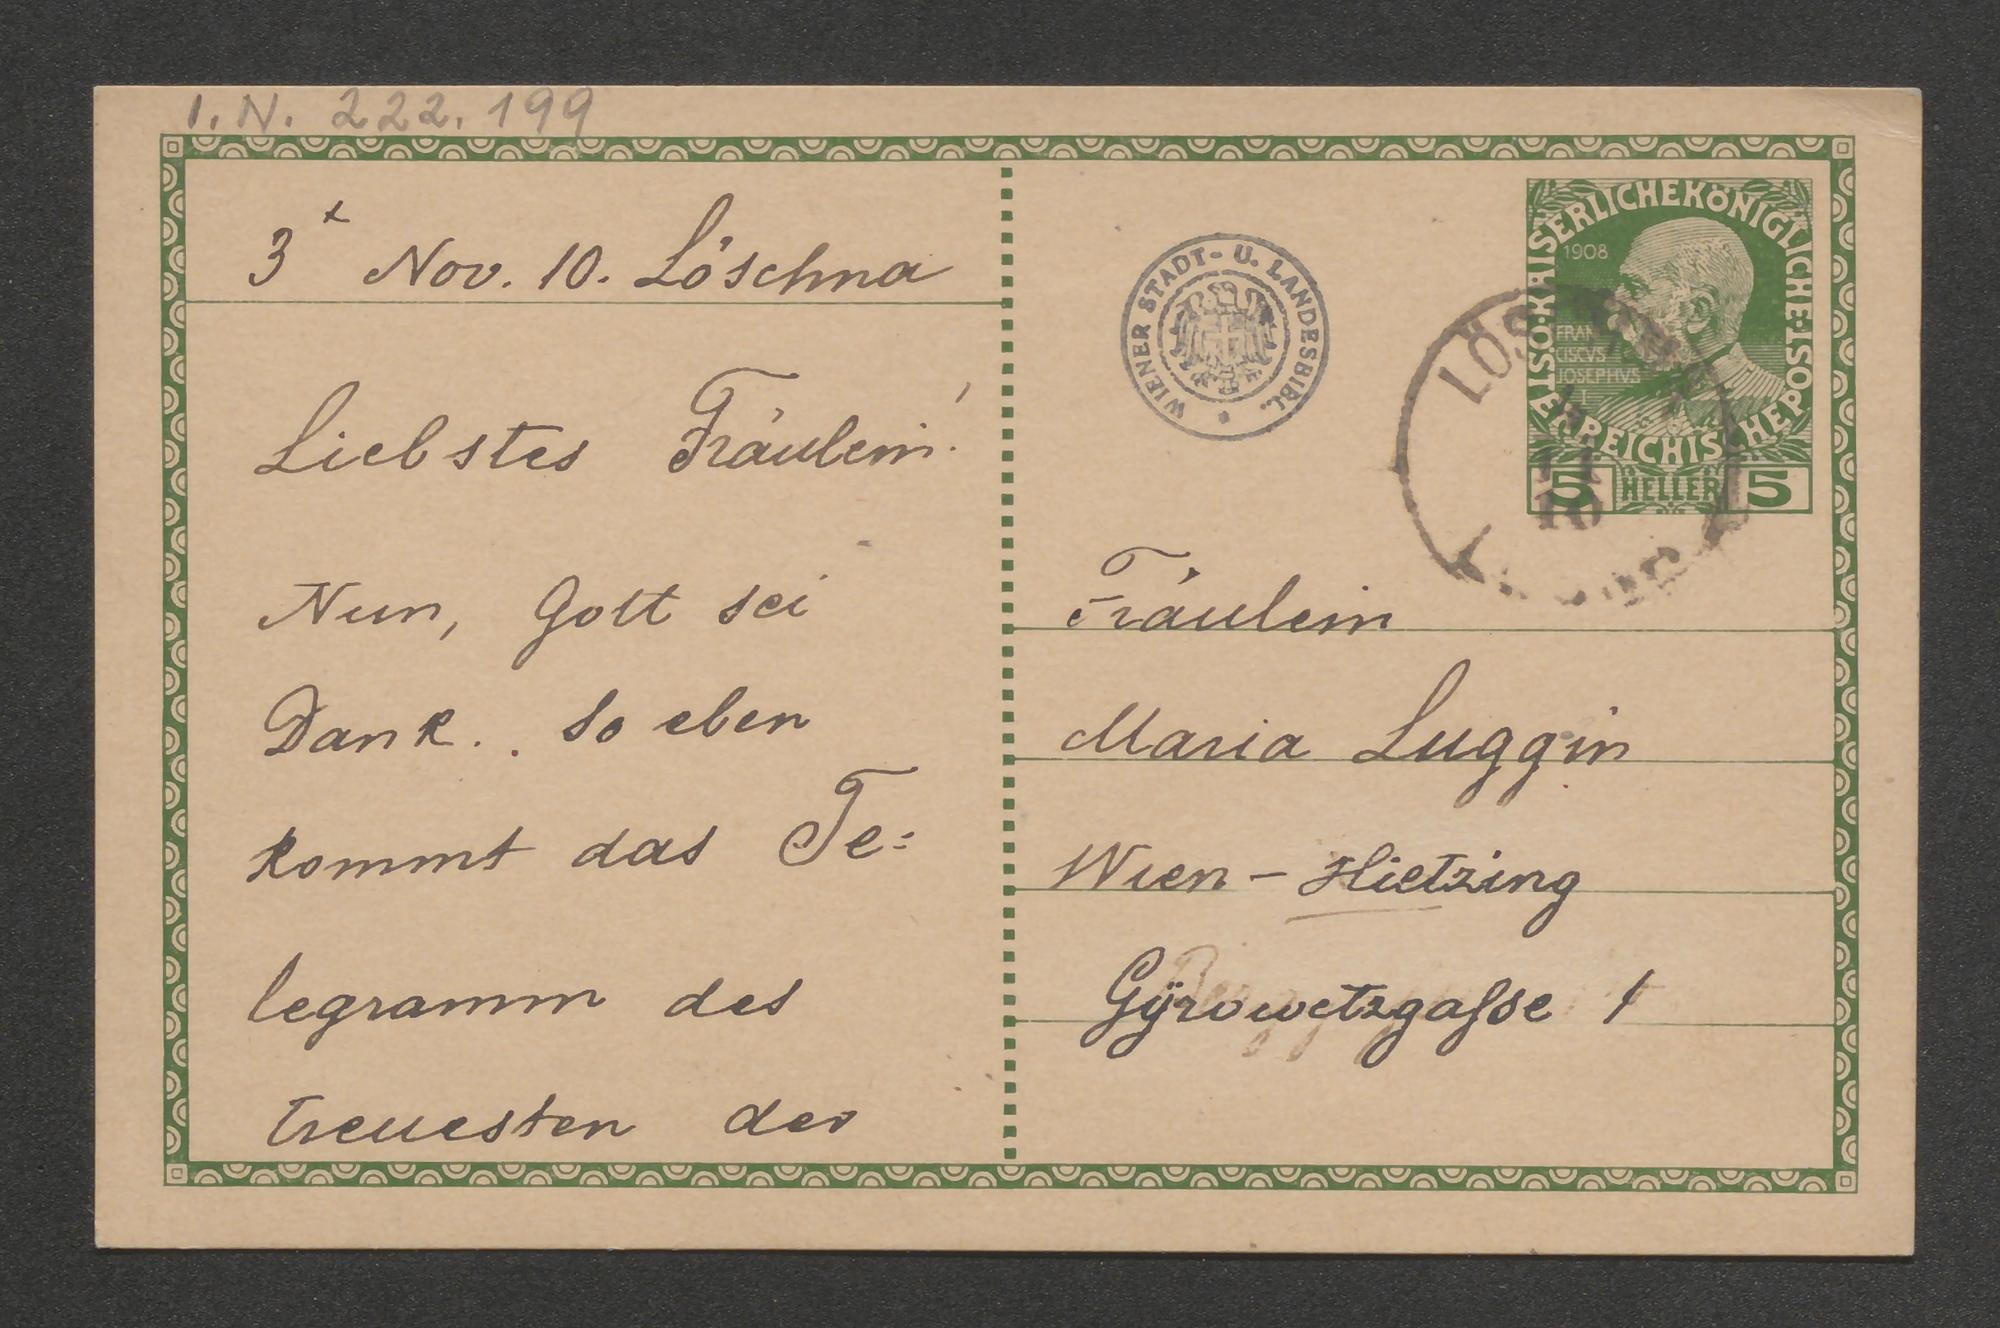 I.N. 222.199
3t Nov. 10. Löschna
Liebstes Fräulein!
Nun, Gott sei
Dank. . So eben
kommt das Te-
legramm des
treuesten der
WIENER STADT- U. LANDESBIBL.
KAISERLICHEKÖNIGLICHE·ÖSTERREICHISCHEPOST
1908
FRAN
CISCVS
JOSEPHVS
I
5 HELLER 5
LÖSCHNA
10
Fräulein
Maria Luggin
Wien - Hietzing
Gÿrowetzgaſse 1